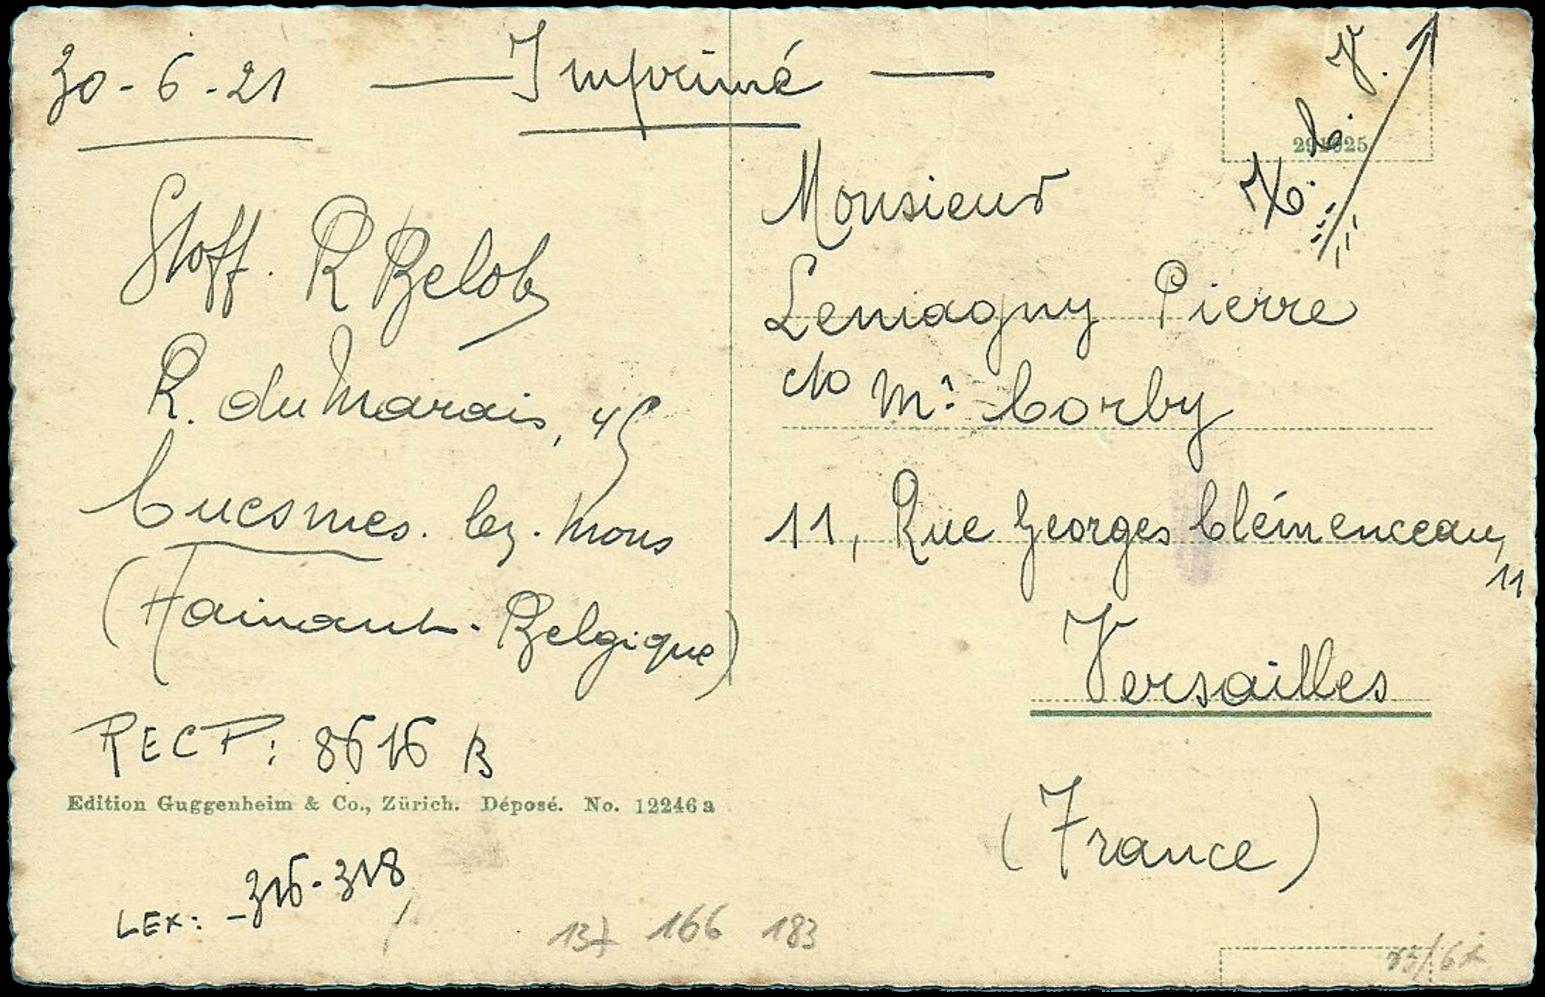 30-6-21 — Imprimé —
Stoff. R Belot
R. du Marais, 45
Cuesmes. lez. Mons
(Hainaut - Belgique)
RECP: 8616 B
Edition Guggenheim & Co., Zürich. Déposé. No. 12246 a
LEX: -316-318,
137 166 183
Monsieur
Lemagny Pierre
c/o Mr. Corby
11, Rue Georges Clémenceau,
11
Versailles
(France)